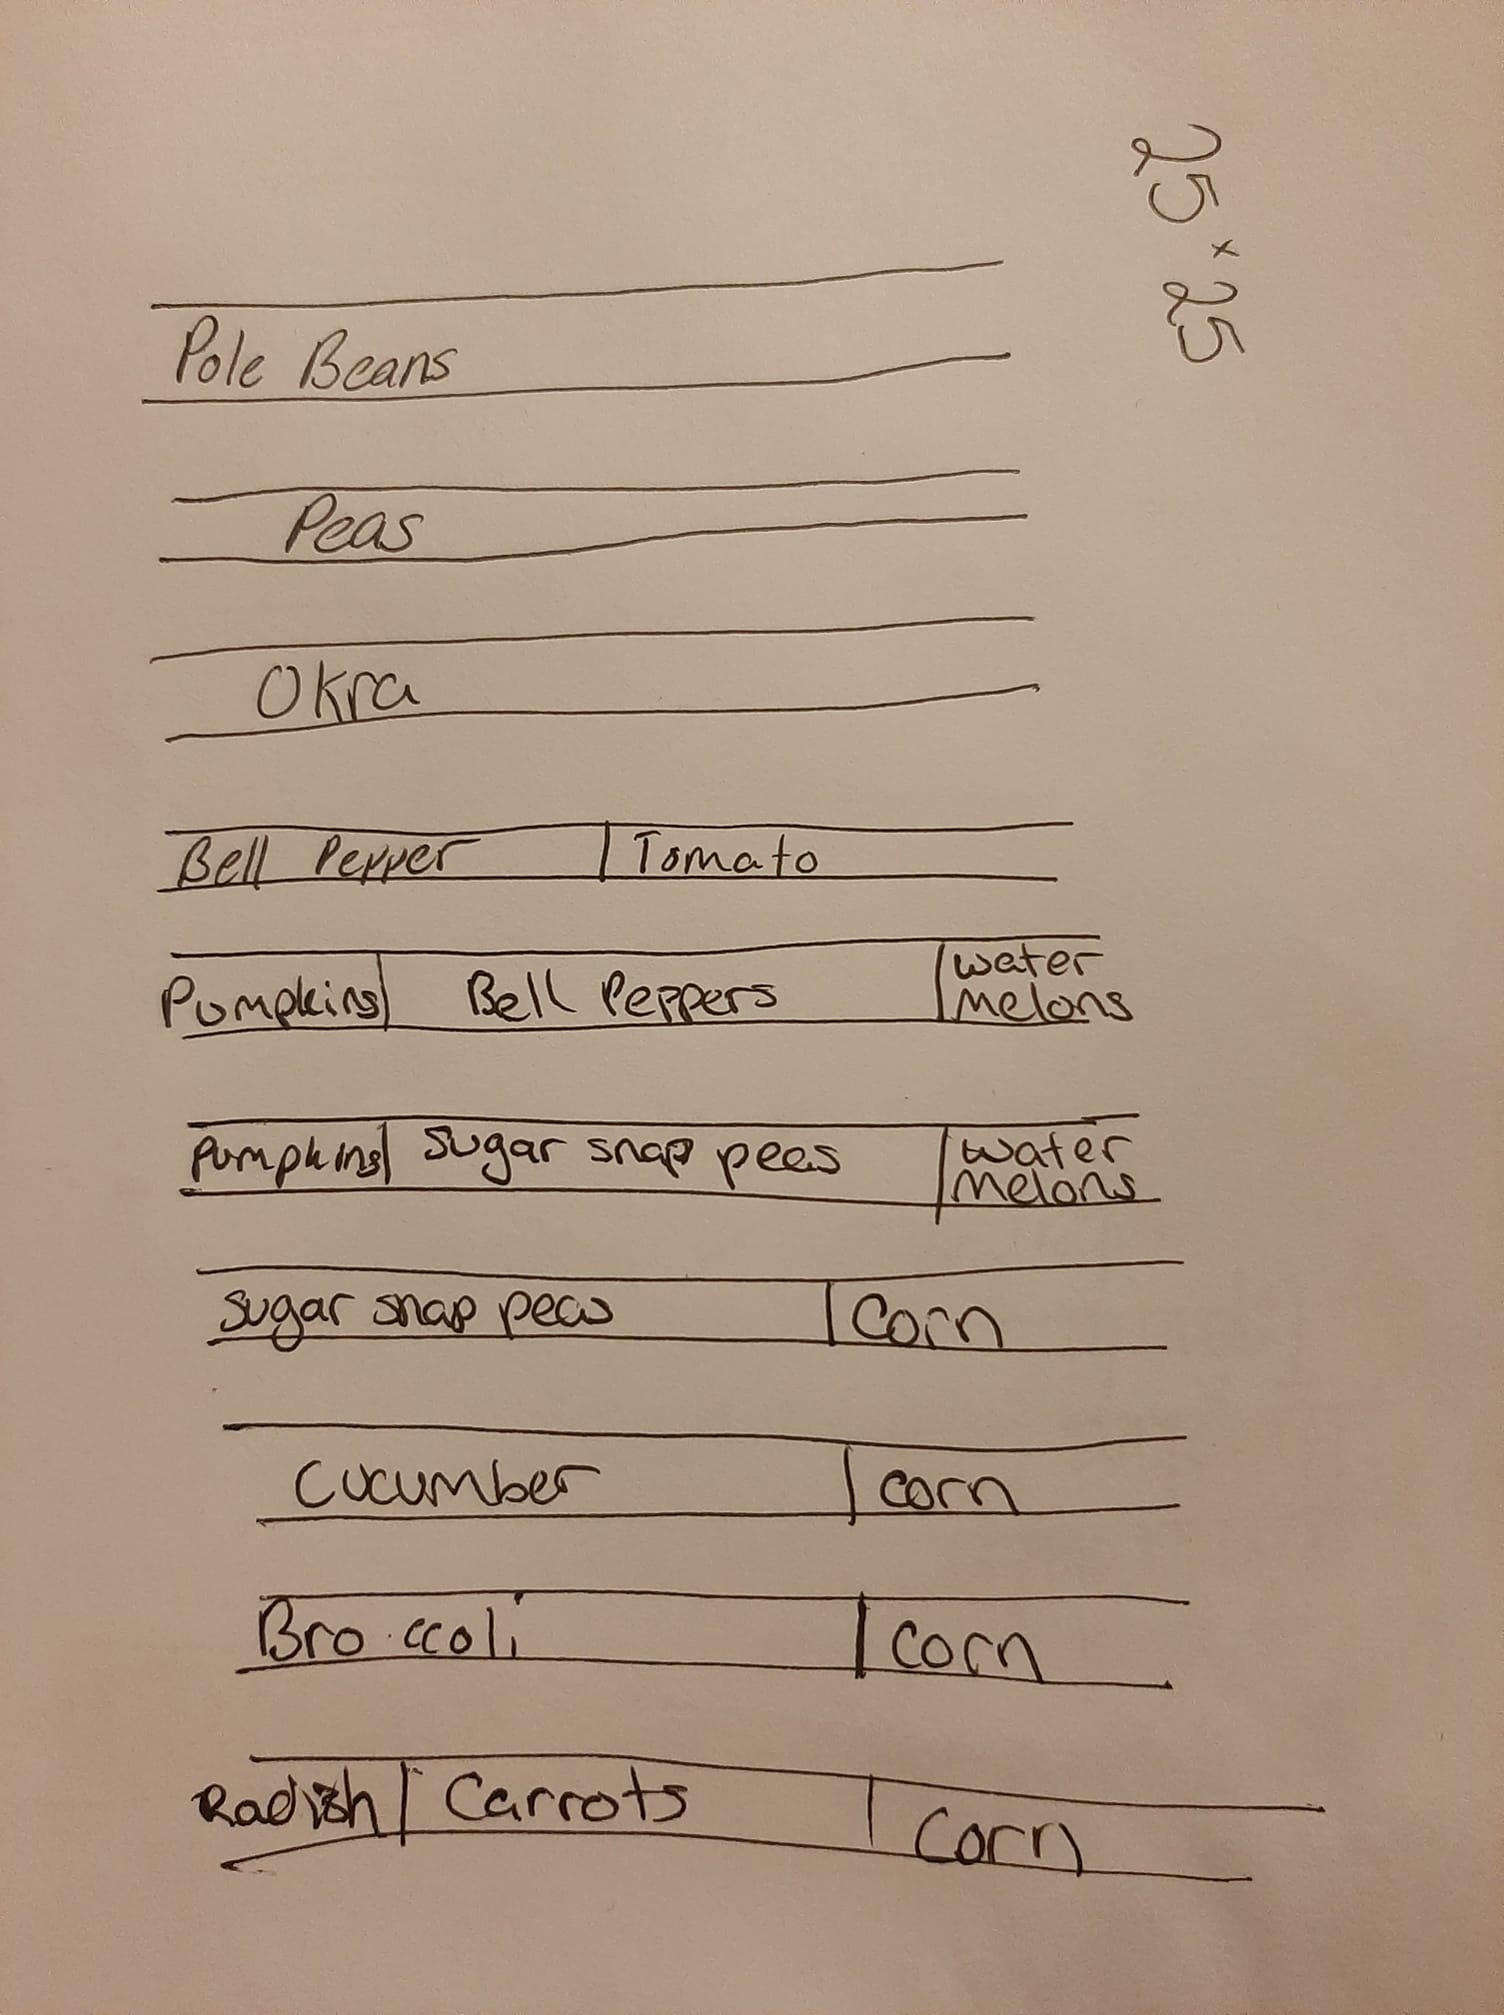 25 x 25
Pole Beans
Peas
Okra
Bell Pepper Tomato
Pumpkins Bell Peppers water
melons
Pumpkins Sugar snap peas water
melons
Sugar snap peas Corn
Cucumber corn
Broccoli corn
Radish Carrots Corn